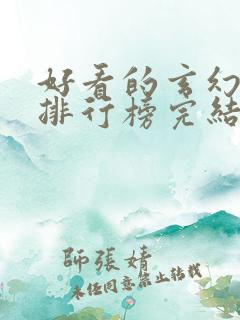 好看的玄幻
排行榜完結
師張婧
未经同意禁止转载